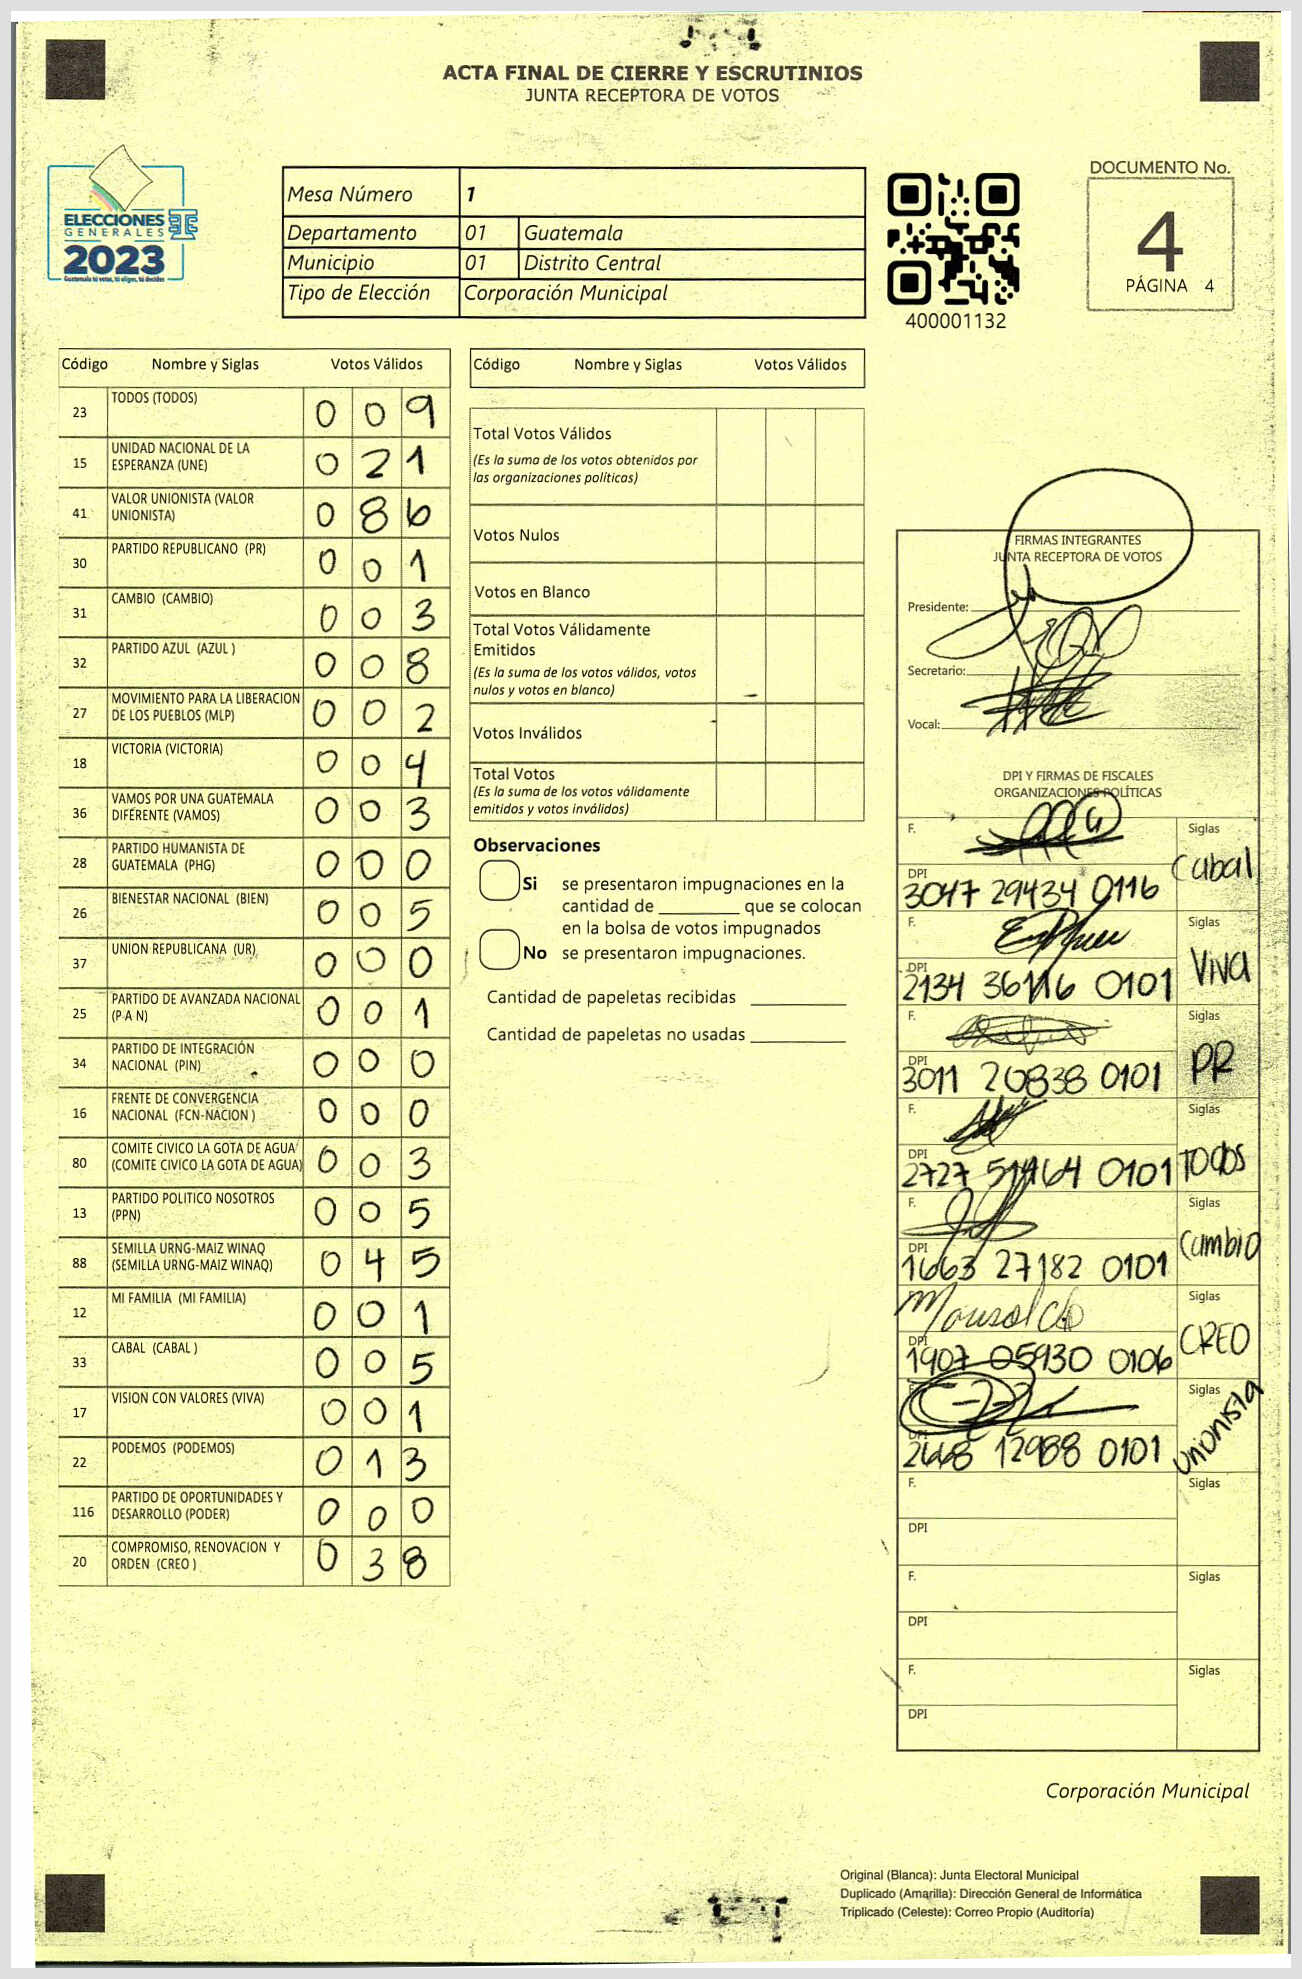 ACTA FINAL DE CIERRE Y ESCRUTINIOS
JUNTA RECEPTORA DE VOTOS
ELECCIONES
GENERALES
2023
Guatemala tú votas, tú eliges, tú decides
Mesa Número 1
Departamento 01 Guatemala
Municipio 01 Distrito Central
Tipo de Elección Corporación Municipal
400001132
DOCUMENTO No.
4
PÁGINA 4
Código Nombre y Siglas Votos Válidos
23 TODOS (TODOS) 0 0 9
15 UNIDAD NACIONAL DE LA
ESPERANZA (UNE) 0 2 1
41 VALOR UNIONISTA (VALOR
UNIONISTA) 0 8 6
30 PARTIDO REPUBLICANO (PR) 0 0 1
31 CAMBIO (CAMBIO) 0 0 3
32 PARTIDO AZUL (AZUL ) 0 0 8
27 MOVIMIENTO PARA LA LIBERACION
DE LOS PUEBLOS (MLP) 0 0 2
18 VICTORIA (VICTORIA) 0 0 4
36 VAMOS POR UNA GUATEMALA
DIFERENTE (VAMOS) 0 0 3
28 PARTIDO HUMANISTA DE
GUATEMALA (PHG) 0 0 0
26 BIENESTAR NACIONAL (BIEN) 0 0 5
37 UNION REPUBLICANA (UR) 0 0 0
25 PARTIDO DE AVANZADA NACIONAL
(P A N) 0 0 1
34 PARTIDO DE INTEGRACIÓN
NACIONAL (PIN) 0 0 0
16 FRENTE DE CONVERGENCIA
NACIONAL (FCN-NACION ) 0 0 0
80 COMITE CIVICO LA GOTA DE AGUA
(COMITE CIVICO LA GOTA DE AGUA) 0 0 3
13 PARTIDO POLITICO NOSOTROS
(PPN) 0 0 5
88 SEMILLA URNG-MAIZ WINAQ
(SEMILLA URNG-MAIZ WINAQ) 0 4 5
12 MI FAMILIA (MI FAMILIA) 0 0 1
33 CABAL (CABAL ) 0 0 5
17 VISION CON VALORES (VIVA) 0 0 1
22 PODEMOS (PODEMOS) 0 1 3
116 PARTIDO DE OPORTUNIDADES Y
DESARROLLO (PODER) 0 0 0
20 COMPROMISO, RENOVACION Y
ORDEN (CREO ) 0 3 8
Código Nombre y Siglas Votos Válidos
Total Votos Válidos
(Es la suma de los votos obtenidos por
las organizaciones políticas)
Votos Nulos
Votos en Blanco
Total Votos Válidamente
Emitidos
(Es la suma de los votos válidos, votos
nulos y votos en blanco)
Votos Inválidos
Total Votos
(Es la suma de los votos válidamente
emitidos y votos inválidos)
Observaciones
Si se presentaron impugnaciones en la
cantidad de ________ que se colocan
en la bolsa de votos impugnados
No se presentaron impugnaciones.
Cantidad de papeletas recibidas
Cantidad de papeletas no usadas
FIRMAS INTEGRANTES
JUNTA RECEPTORA DE VOTOS
Presidente:
Secretario:
Vocal:
DPI Y FIRMAS DE FISCALES
ORGANIZACIONES POLÍTICAS
F. Siglas
Cabal
DPI
3047 29434 0116
F. Siglas
Viva
DPI
2134 36116 0101
F. Siglas
PR
DPI
3011 20838 0101
F. Siglas
TODOS
DPI
2727 0101
F. Siglas
Cambio
DPI
1663 27182 0101
Siglas
CREO
DPI
1907 05930 0106
F. Siglas
Unionista
DPI
2668 12988 0101
F. Siglas
DPI
F. Siglas
DPI
F. Siglas
DPI
Corporación Municipal
Original (Blanca): Junta Electoral Municipal
Duplicado (Amarilla): Dirección General de Informática
Triplicado (Celeste): Correo Propio (Auditoría)